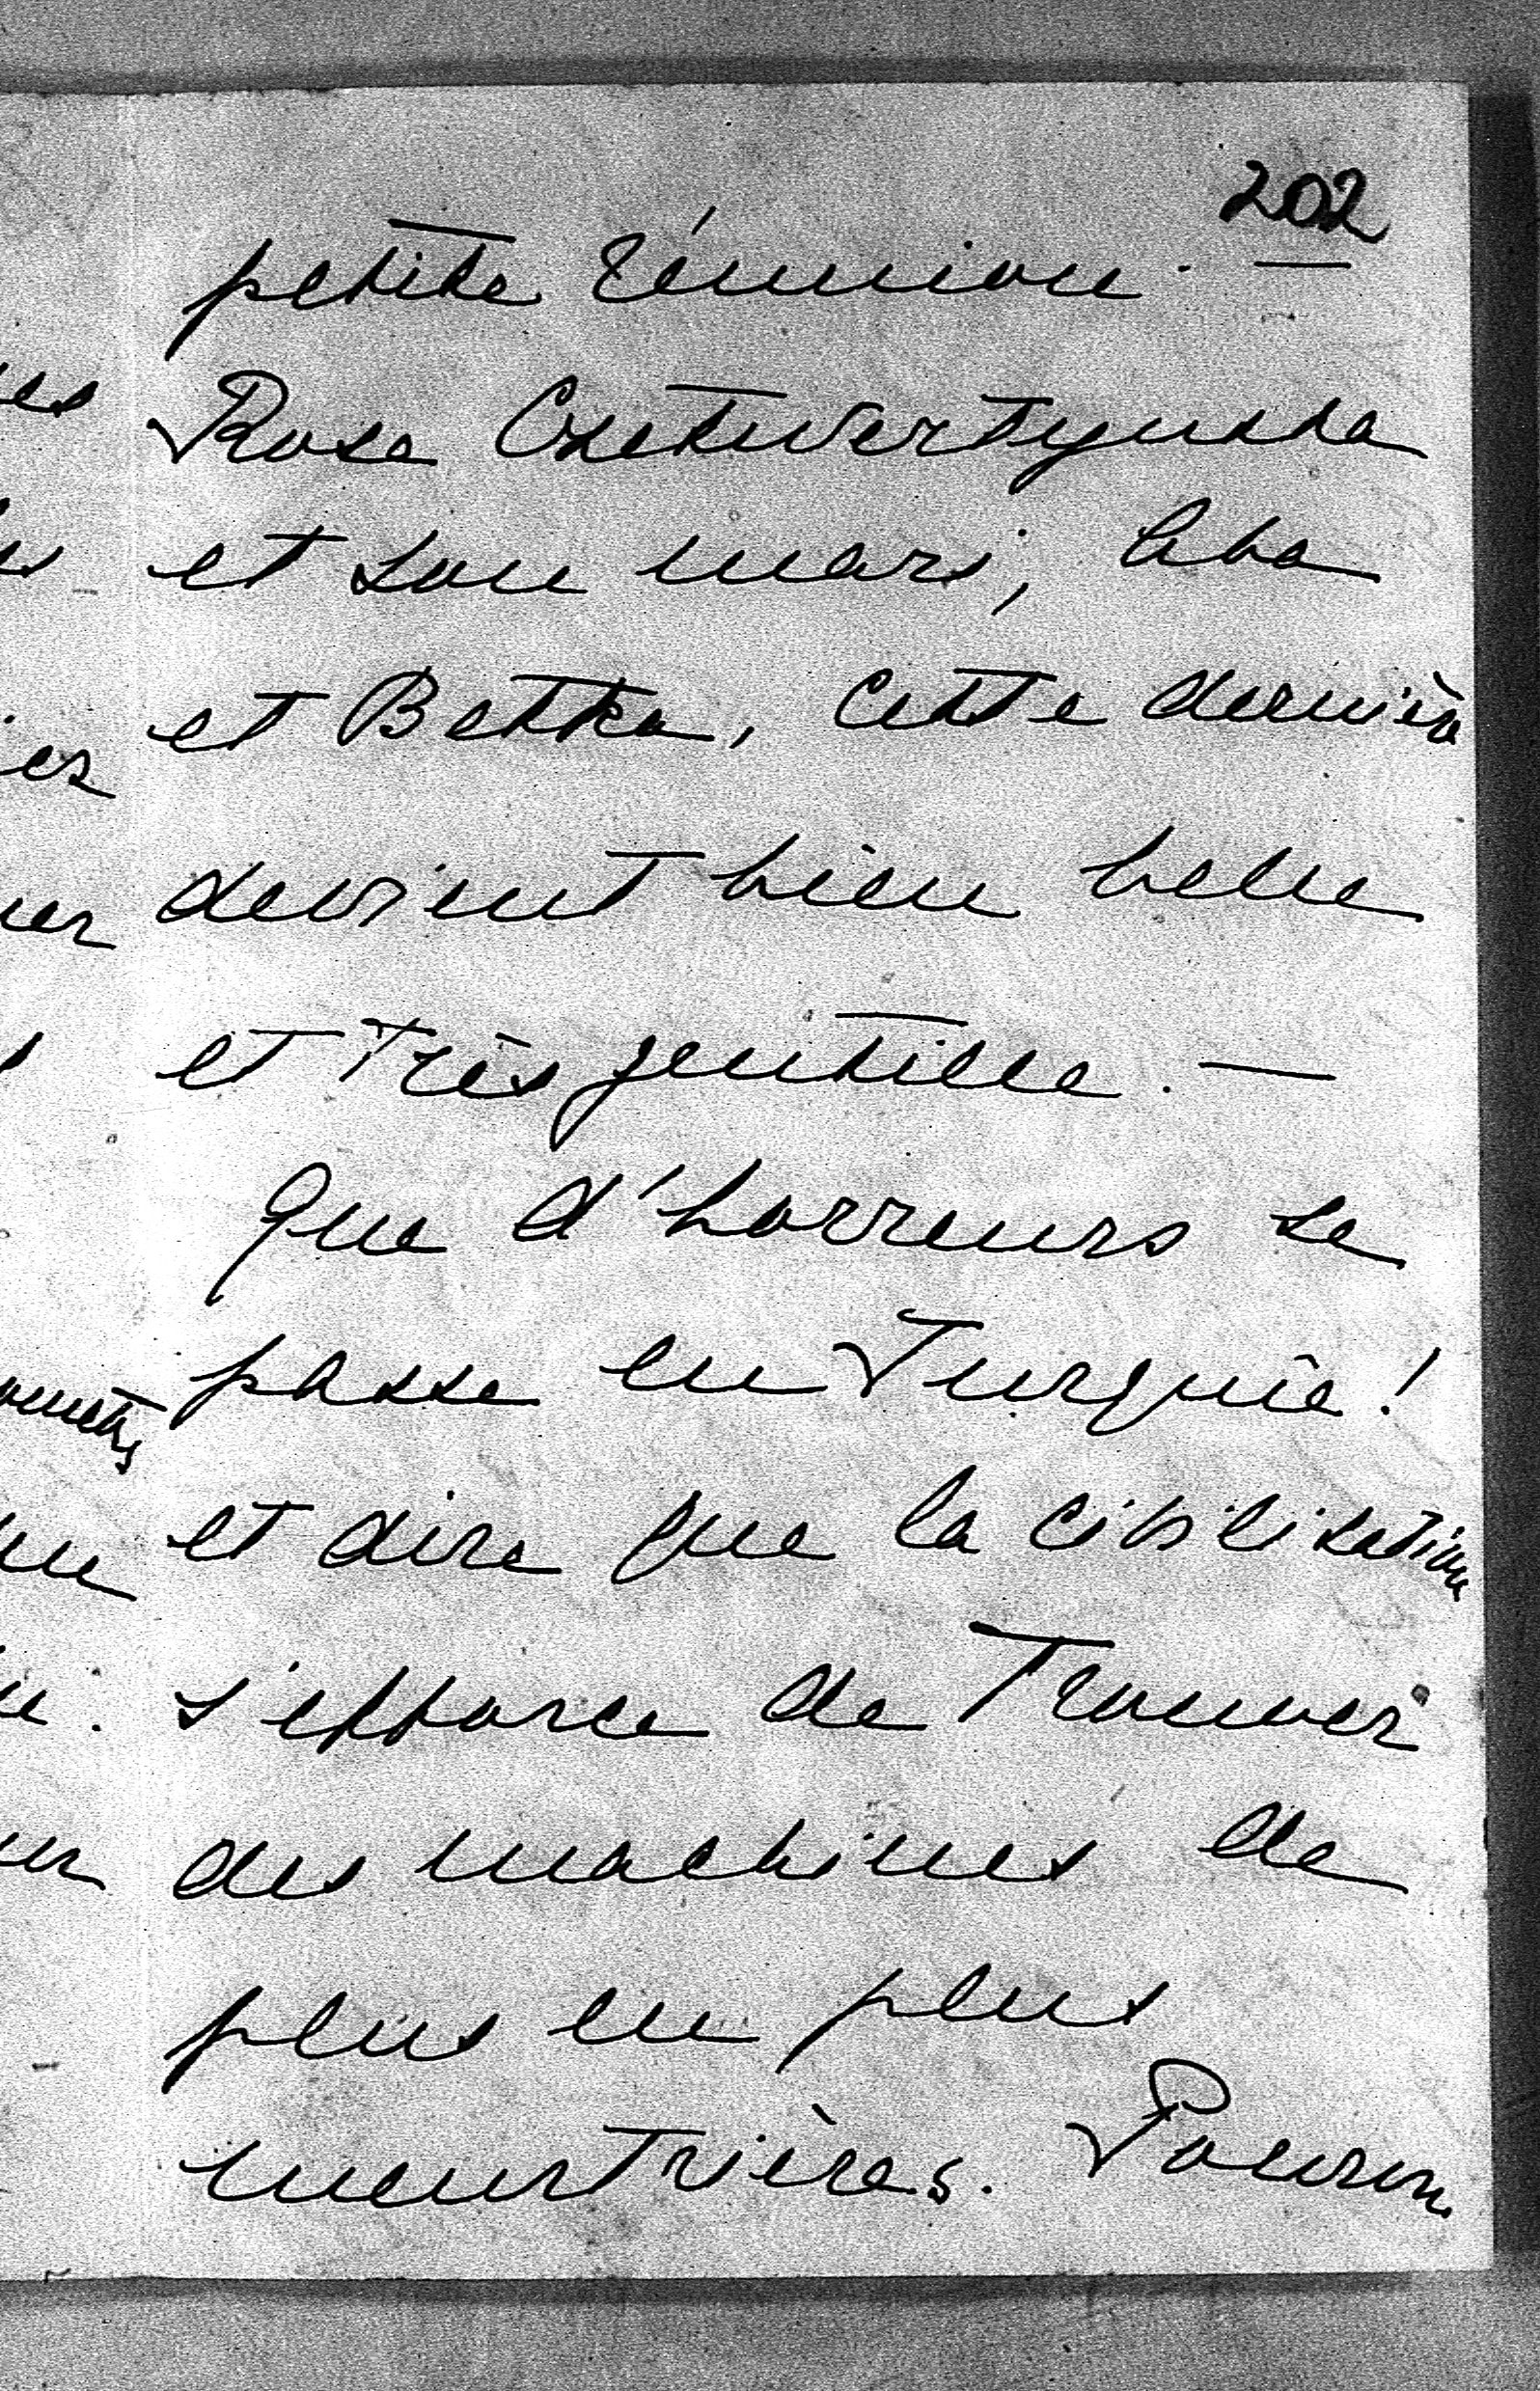 202
petite réunion. —
Rose Czetwertynska
et son mari, Liba
et Betka, cette dernière
devient bien belle
et très gentille. —
Que d'horreurs se
passe en Turquie!
et dire que la civilisation
s'efforce de trouver
des machines de
plus en plus
meurtrières. Pouvon